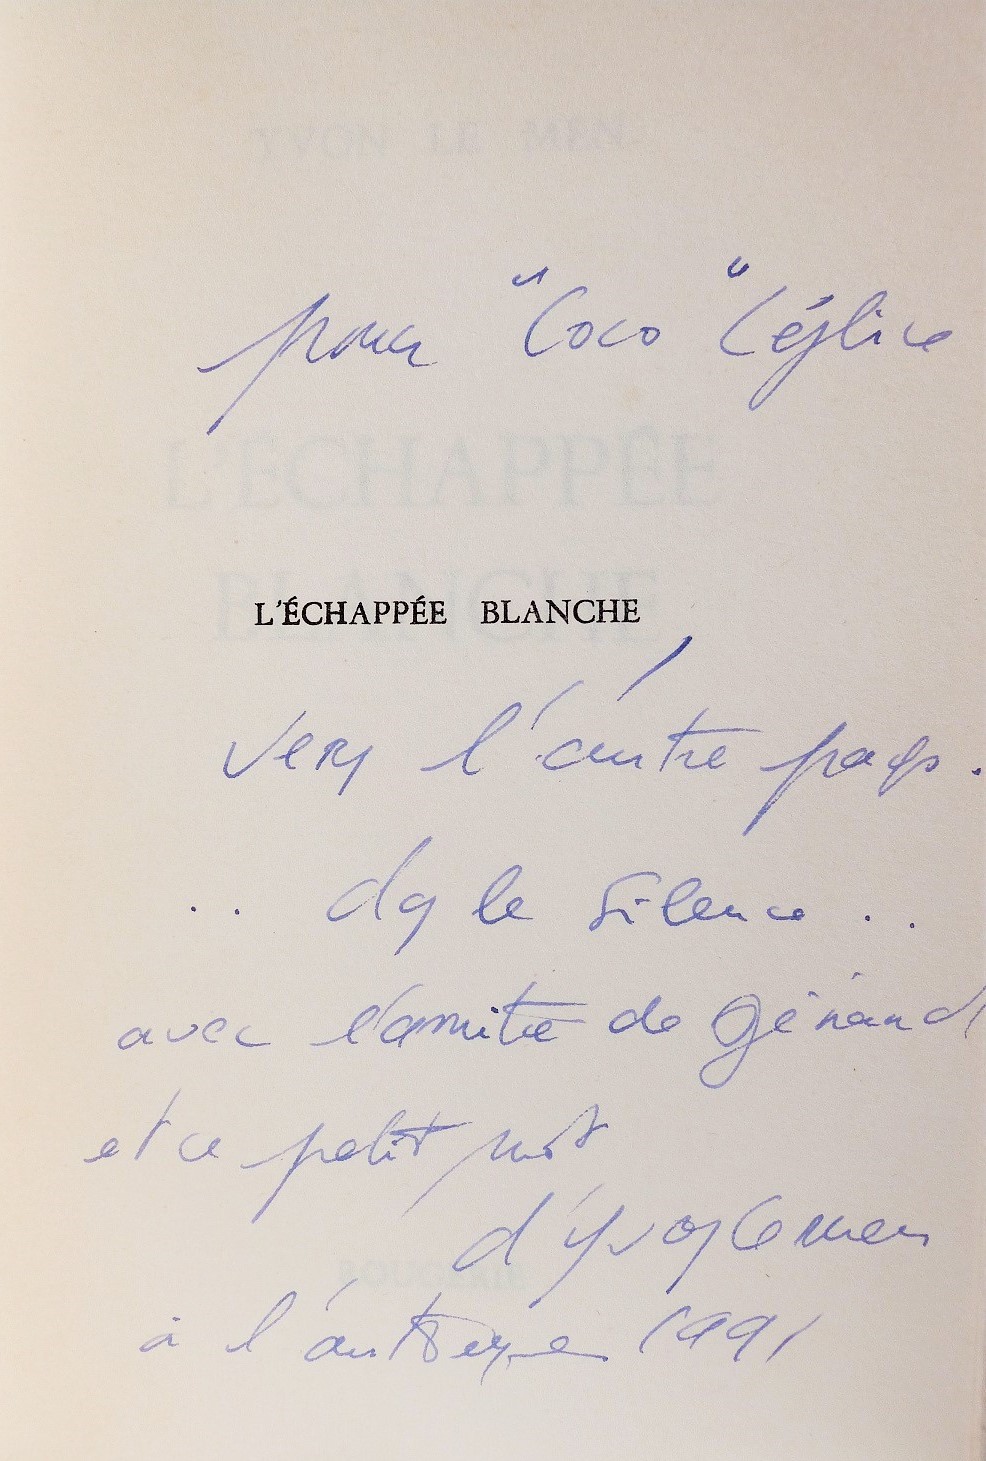 YVON LE MEN
pour "Coco" Léglise
L'ÉCHAPPÉE
BLANCHE
L'ÉCHAPPÉE BLANCHE
vers l'autre pays.
.. ds le silence ..
avec l'amitié de Gérard
et ce petit mot
d'Yvon Le Men
ROUGERIE
à l'automne 1991